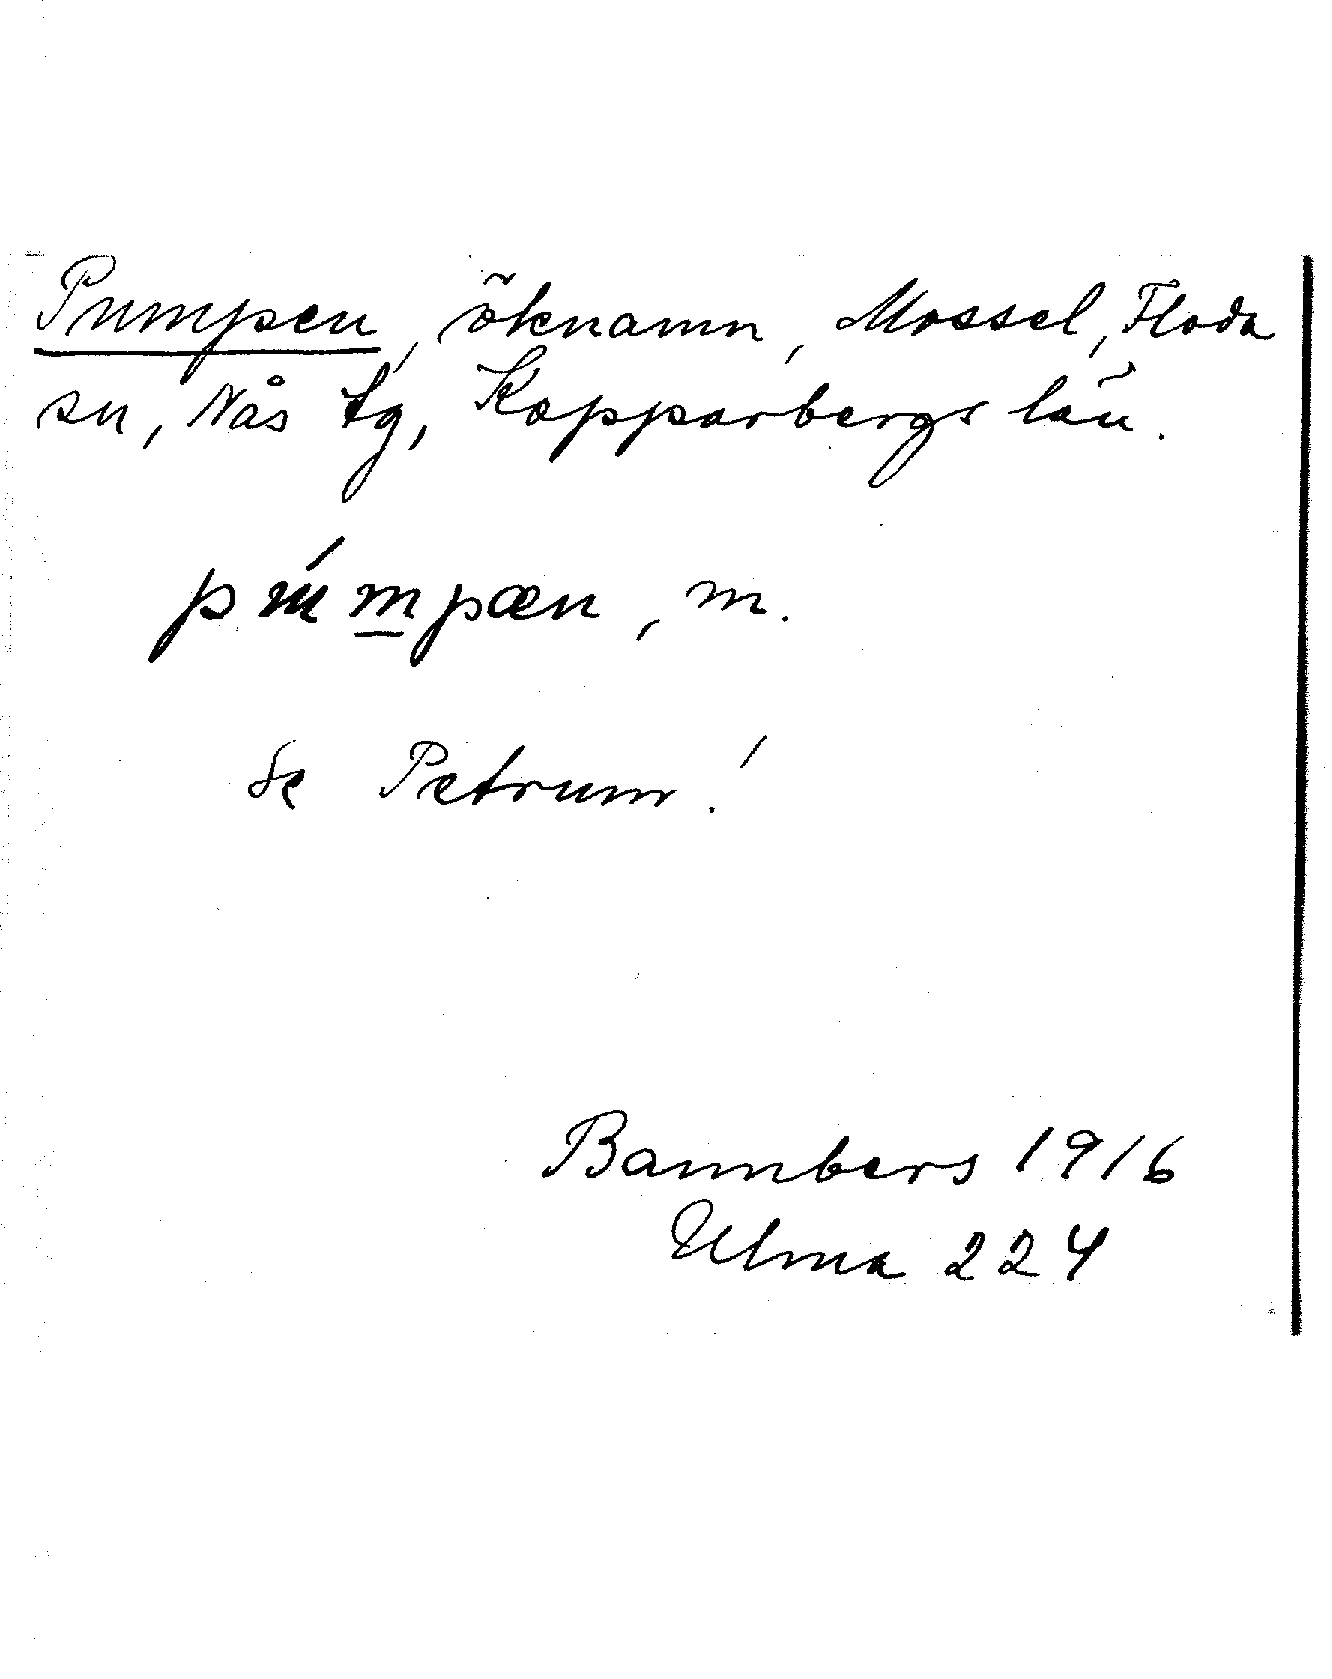 Pumpen, öknamn, Mossel, Floda
sn, Nås tg, Kopparbergs län.
púmpæn, m.
Se Petrum!
Bannbers 1916
Ulma 224